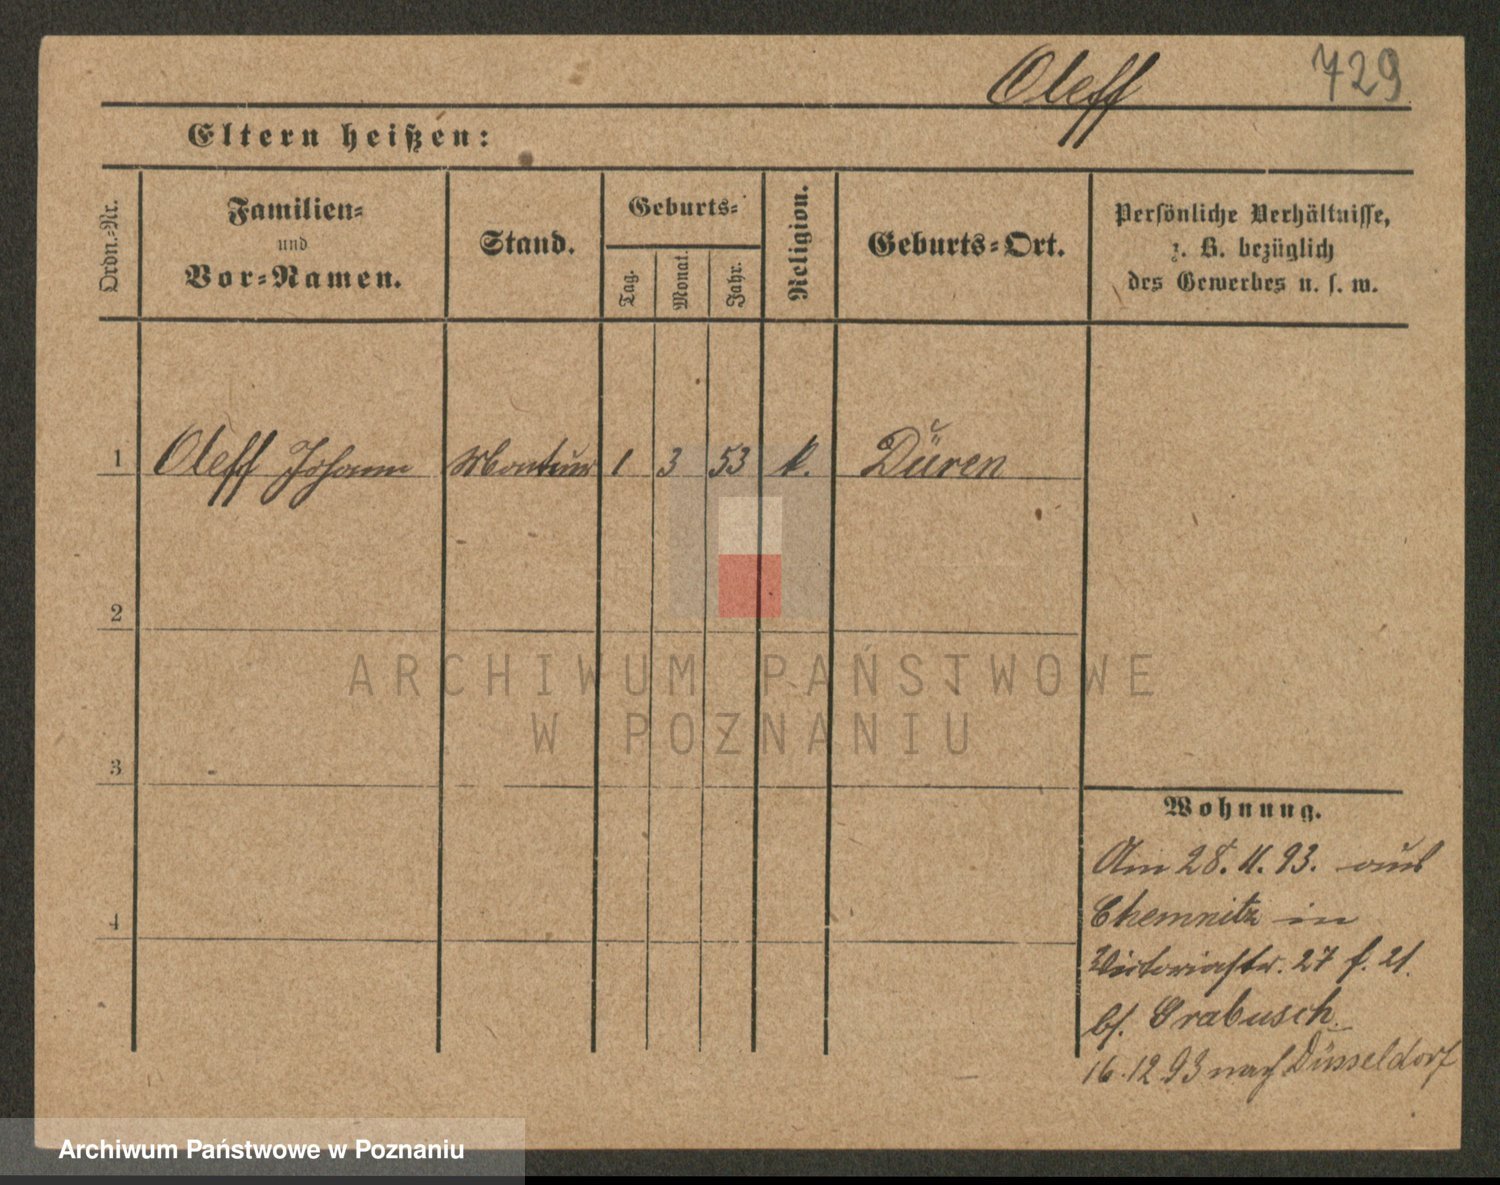 Oleff 729
Eltern heißen:
Ordn.-Nr.
Familien-
und
Vor-Namen.
Stand.
Geburts-
Tag.
Monat.
Jahr.
Religion.
Geburts-Ort.
Persönliche Verhältnisse,
z. B. bezüglich
des Gewerbes u. s. w.
1 Oleff Johann Monteur 1 3 53 k. Düren
2
ARCHIWUM PAŃSTWOWE
W POZNANIU
3
Wohnung.
Am 28.11.93. aus
Chemnitz in
4
Victoriastr. 27
bs. Grabusch
16.12 93 nach Düsseldorf
Archiwum Państwowe w Poznaniu